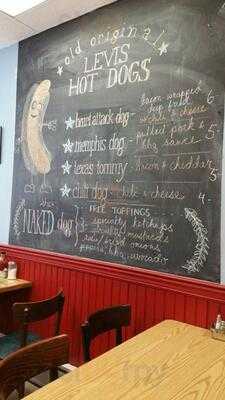 old original
LEVIS
HOT DOGS
heart attack dog
bacon wrapped
deep fried
w chili & cheese
6
memphis dog
pulled pork &
bbq sauce
5
texas tommy
bacon & cheddar
5
chili dog
chili & cheese
4
the
NAKED dog
FREE TOPPINGS
3
specialty ketchups
mustards
fried onions
peppers, bbq, avocado